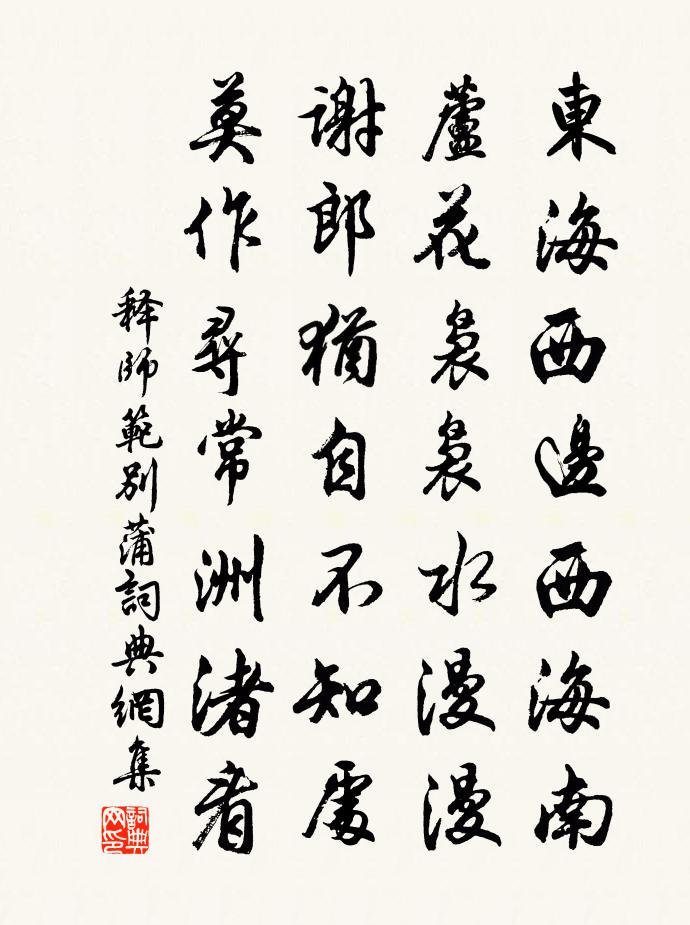 東海西邊西海南
蘆花裊裊水漫漫
謝郎猶自不知處
莫作尋常洲渚看
释師範别蒲詞典網集
詞典网印